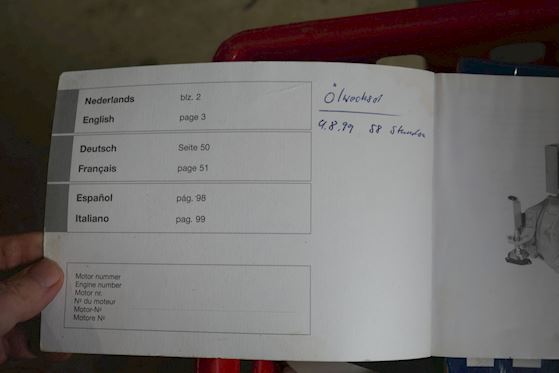 Nederlands blz. 2
English page 3
Deutsch Seite 50
Français page 51
Español pág. 98
Italiano pag. 99
Motor nummer
Engine number
Motor nr.
Nº du moteur
Motor-Nº
Motore Nº
Ölwechsel
4.8.99 58 Stunden